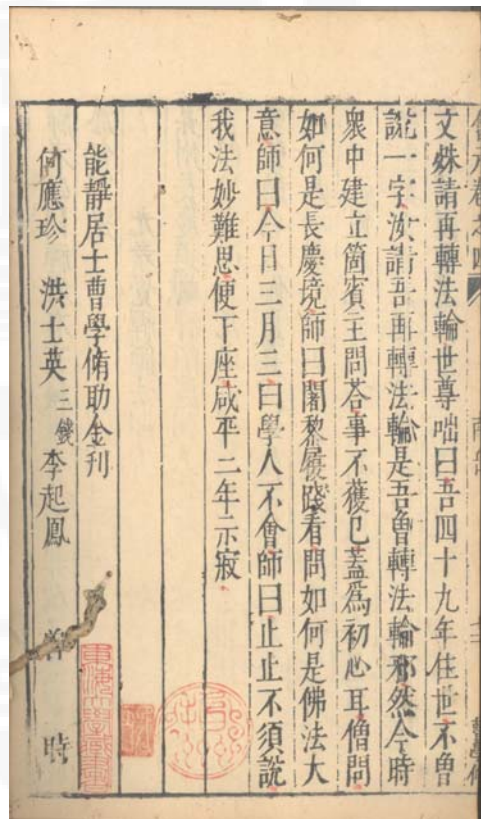 文殊請再轉法輪世尊咄曰吾四十九年住世不曾
說一字汝請吾再轉法輪是吾曾轉法輪邪然今時
衆中建立箇賓主問荅事不獲已葢爲初心耳僧問
如何是長慶境師曰闍黎履踐看問如何是佛法大
意師曰今日三月三曰學人不會師曰止止不須說
我法妙難思便下座咸平二年示寂
能靜居士曹學脩助金刊
何應珍 洪士英 三錢 李起鳳 時
東海大學藏書